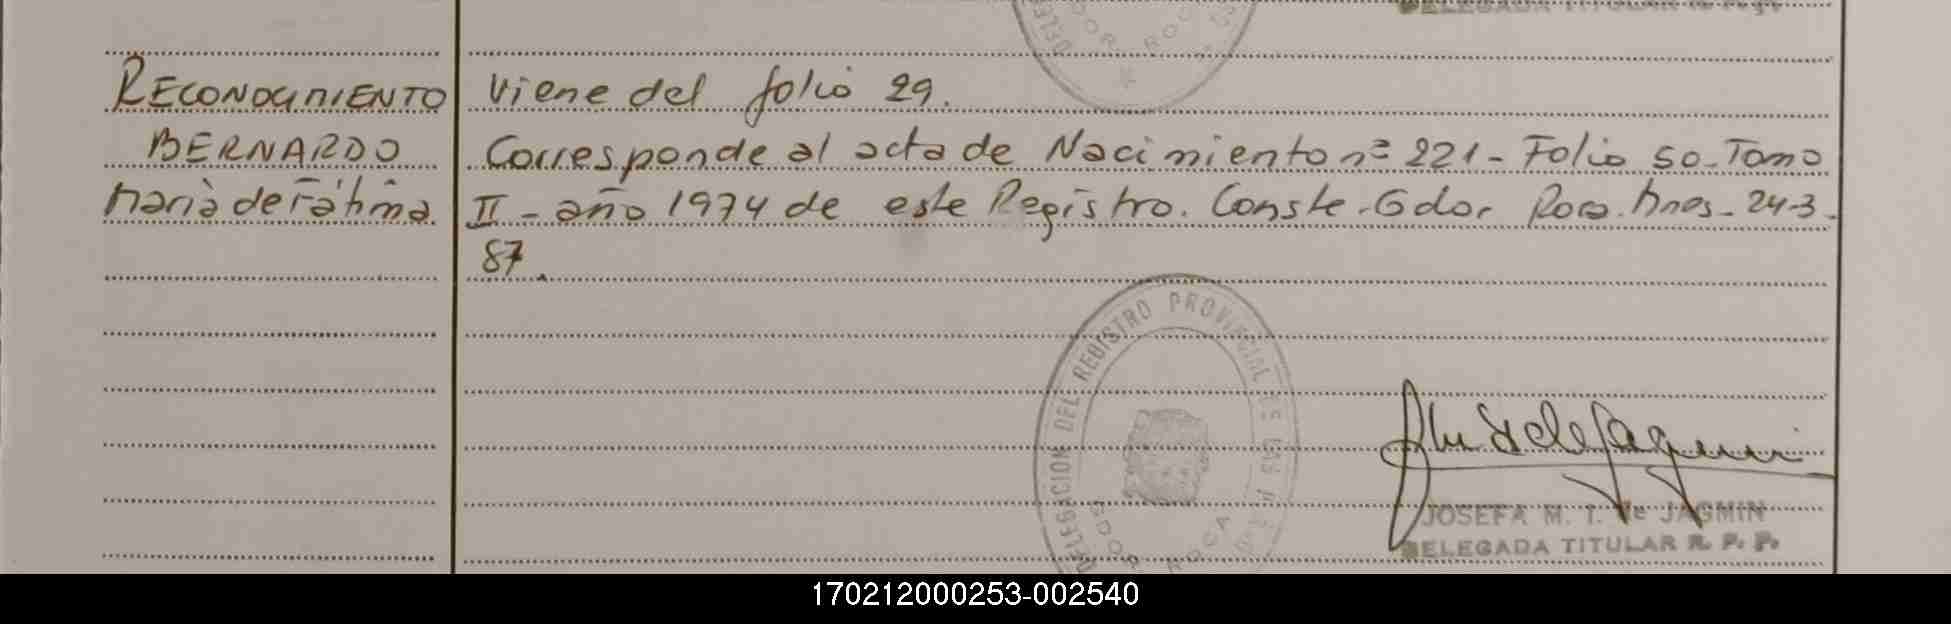 DELEGADA TITULAR R. P. P.
RECONOCIMIENTO
BERNARDO
María de Fátima
Viene del folio 29.
Corresponde al acta de Nacimiento nº 221 - Folio 50 - Tomo
II - año 1974 de este Registro. Conste. Gdor Roca. Mnes - 24-3-
87.
DELEGACION DEL REGISTRO PROVINCIAL DE LAS
GDOR ROCA
JOSEFA M. T. de JAGMIN
DELEGADA TITULAR R. P. P.
170212000253-002540